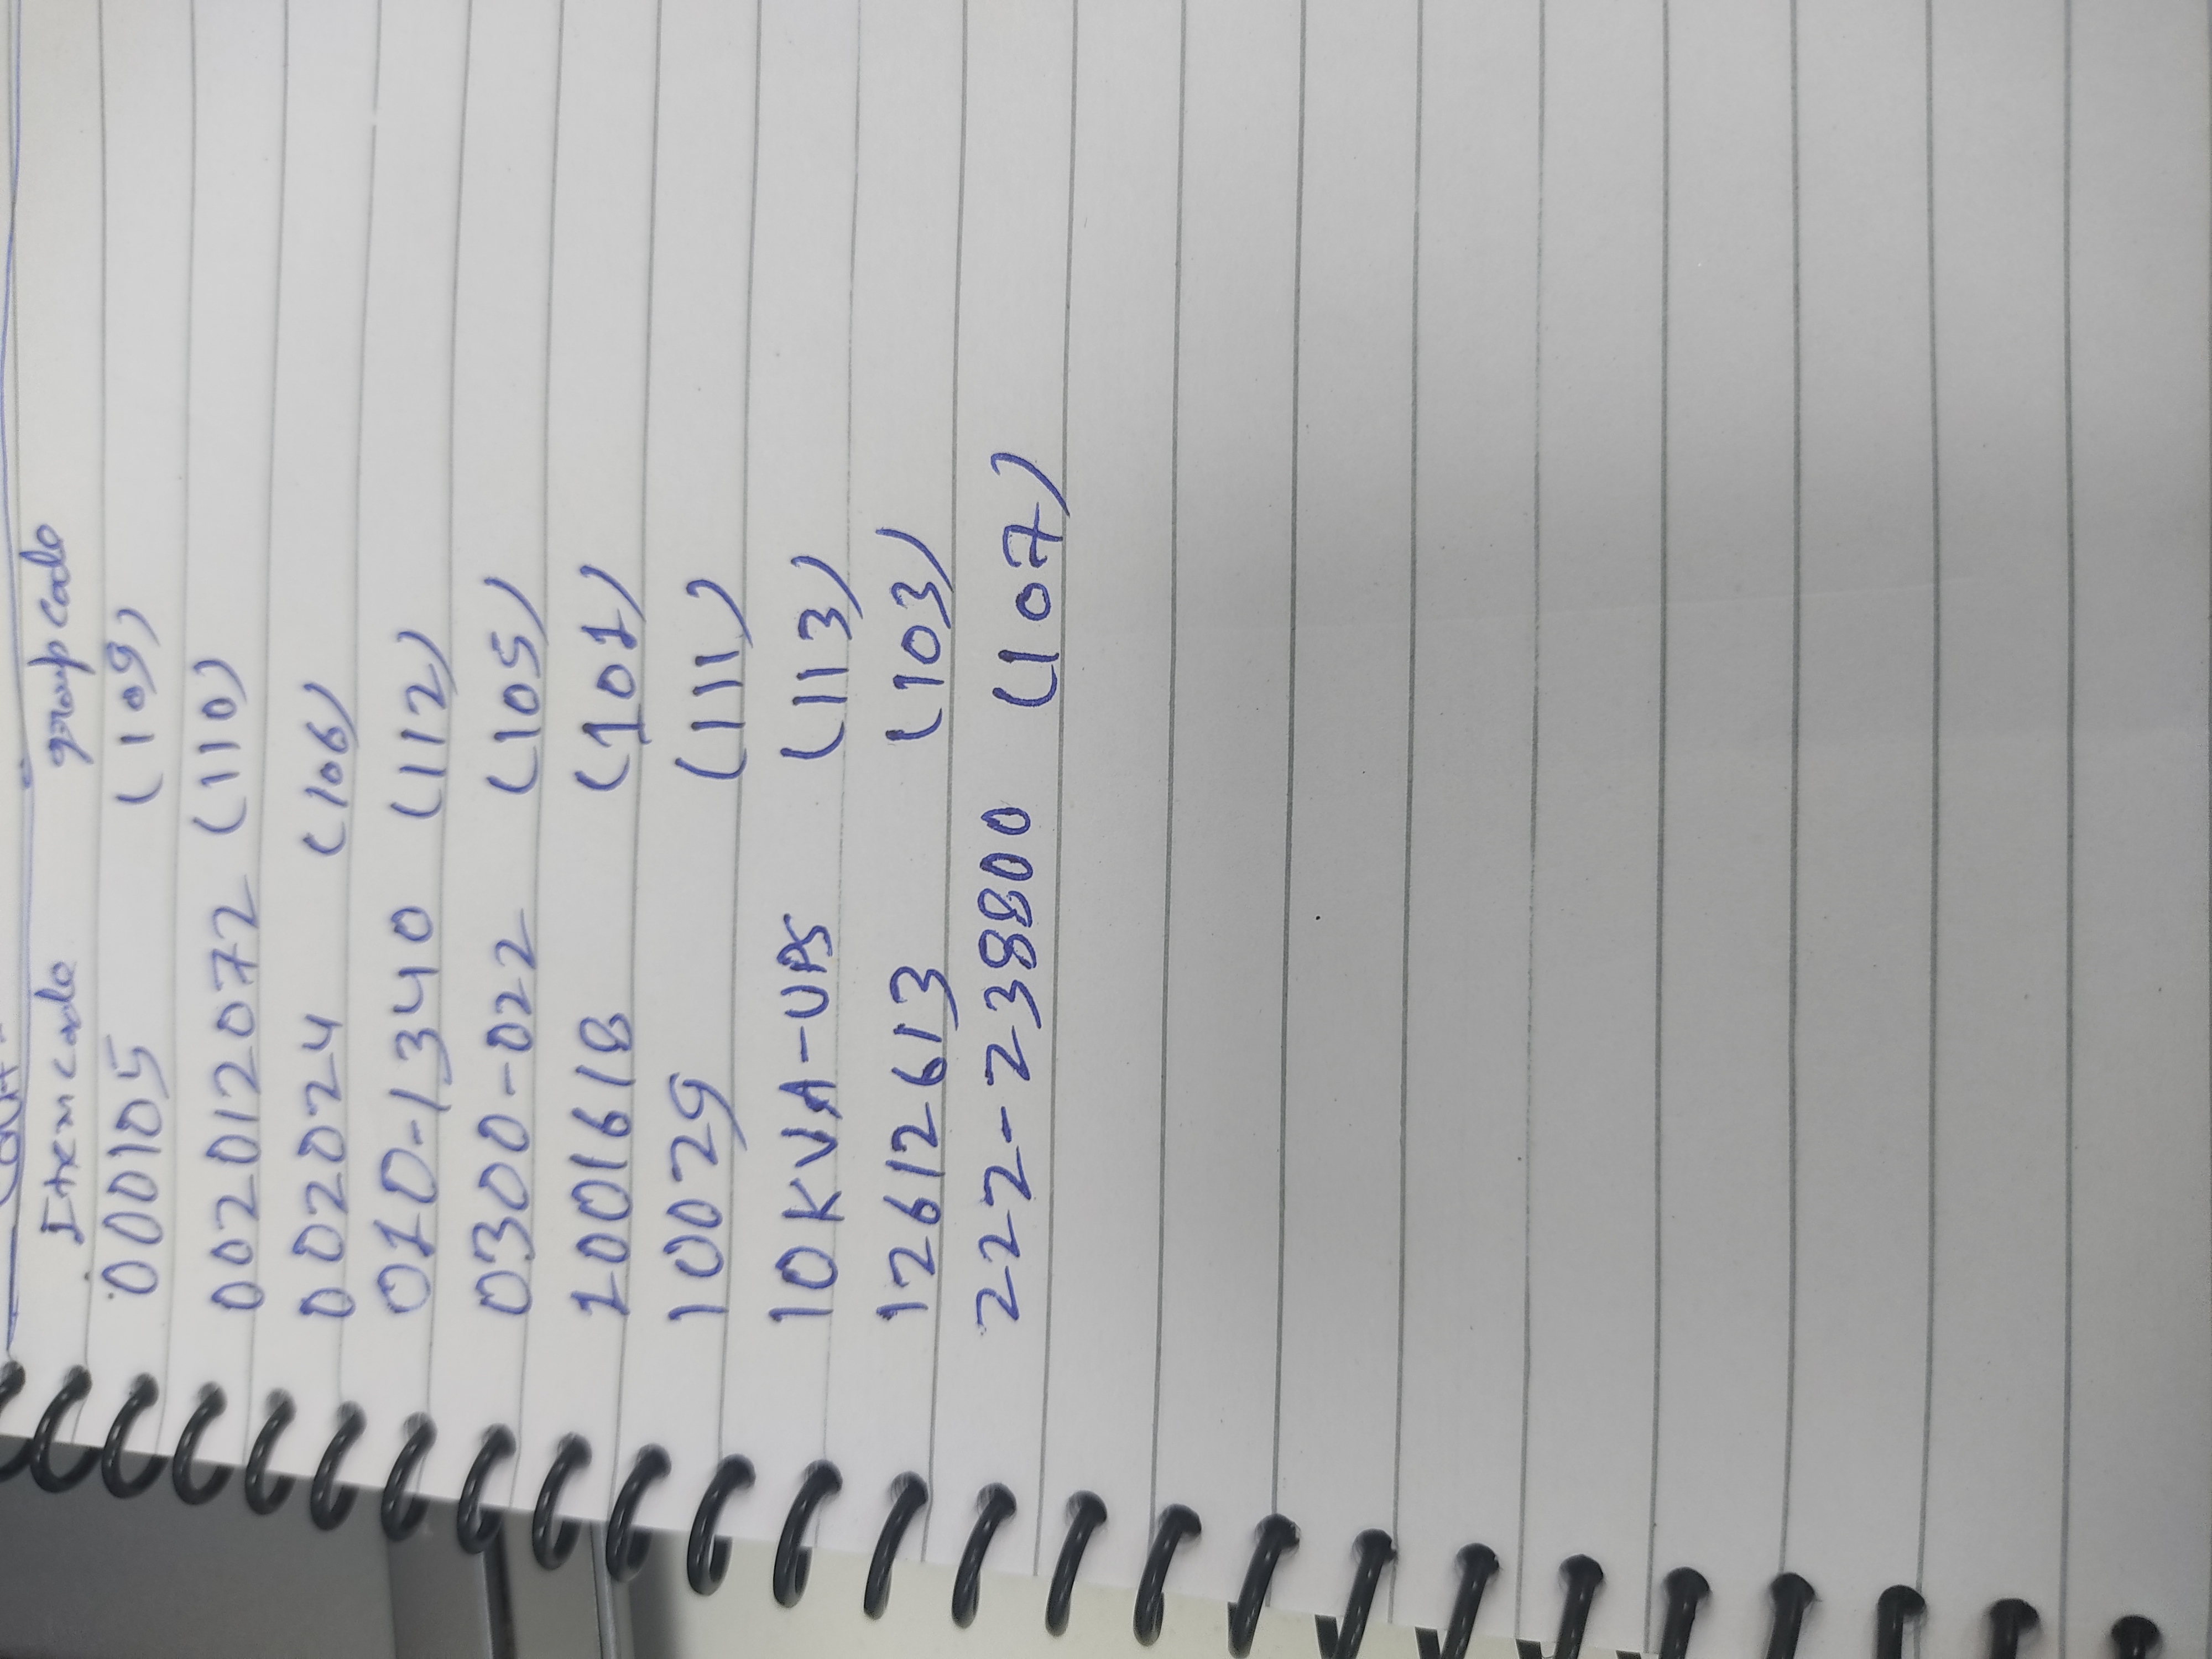 Item code group code
000105 (109)
002012072 (110)
002024 (106)
010-1340 (112)
0300-022 (105)
1001618 (101)
10029 (111)
10KVA-UPS (113)
12612613 (103)
222-238800 (107)